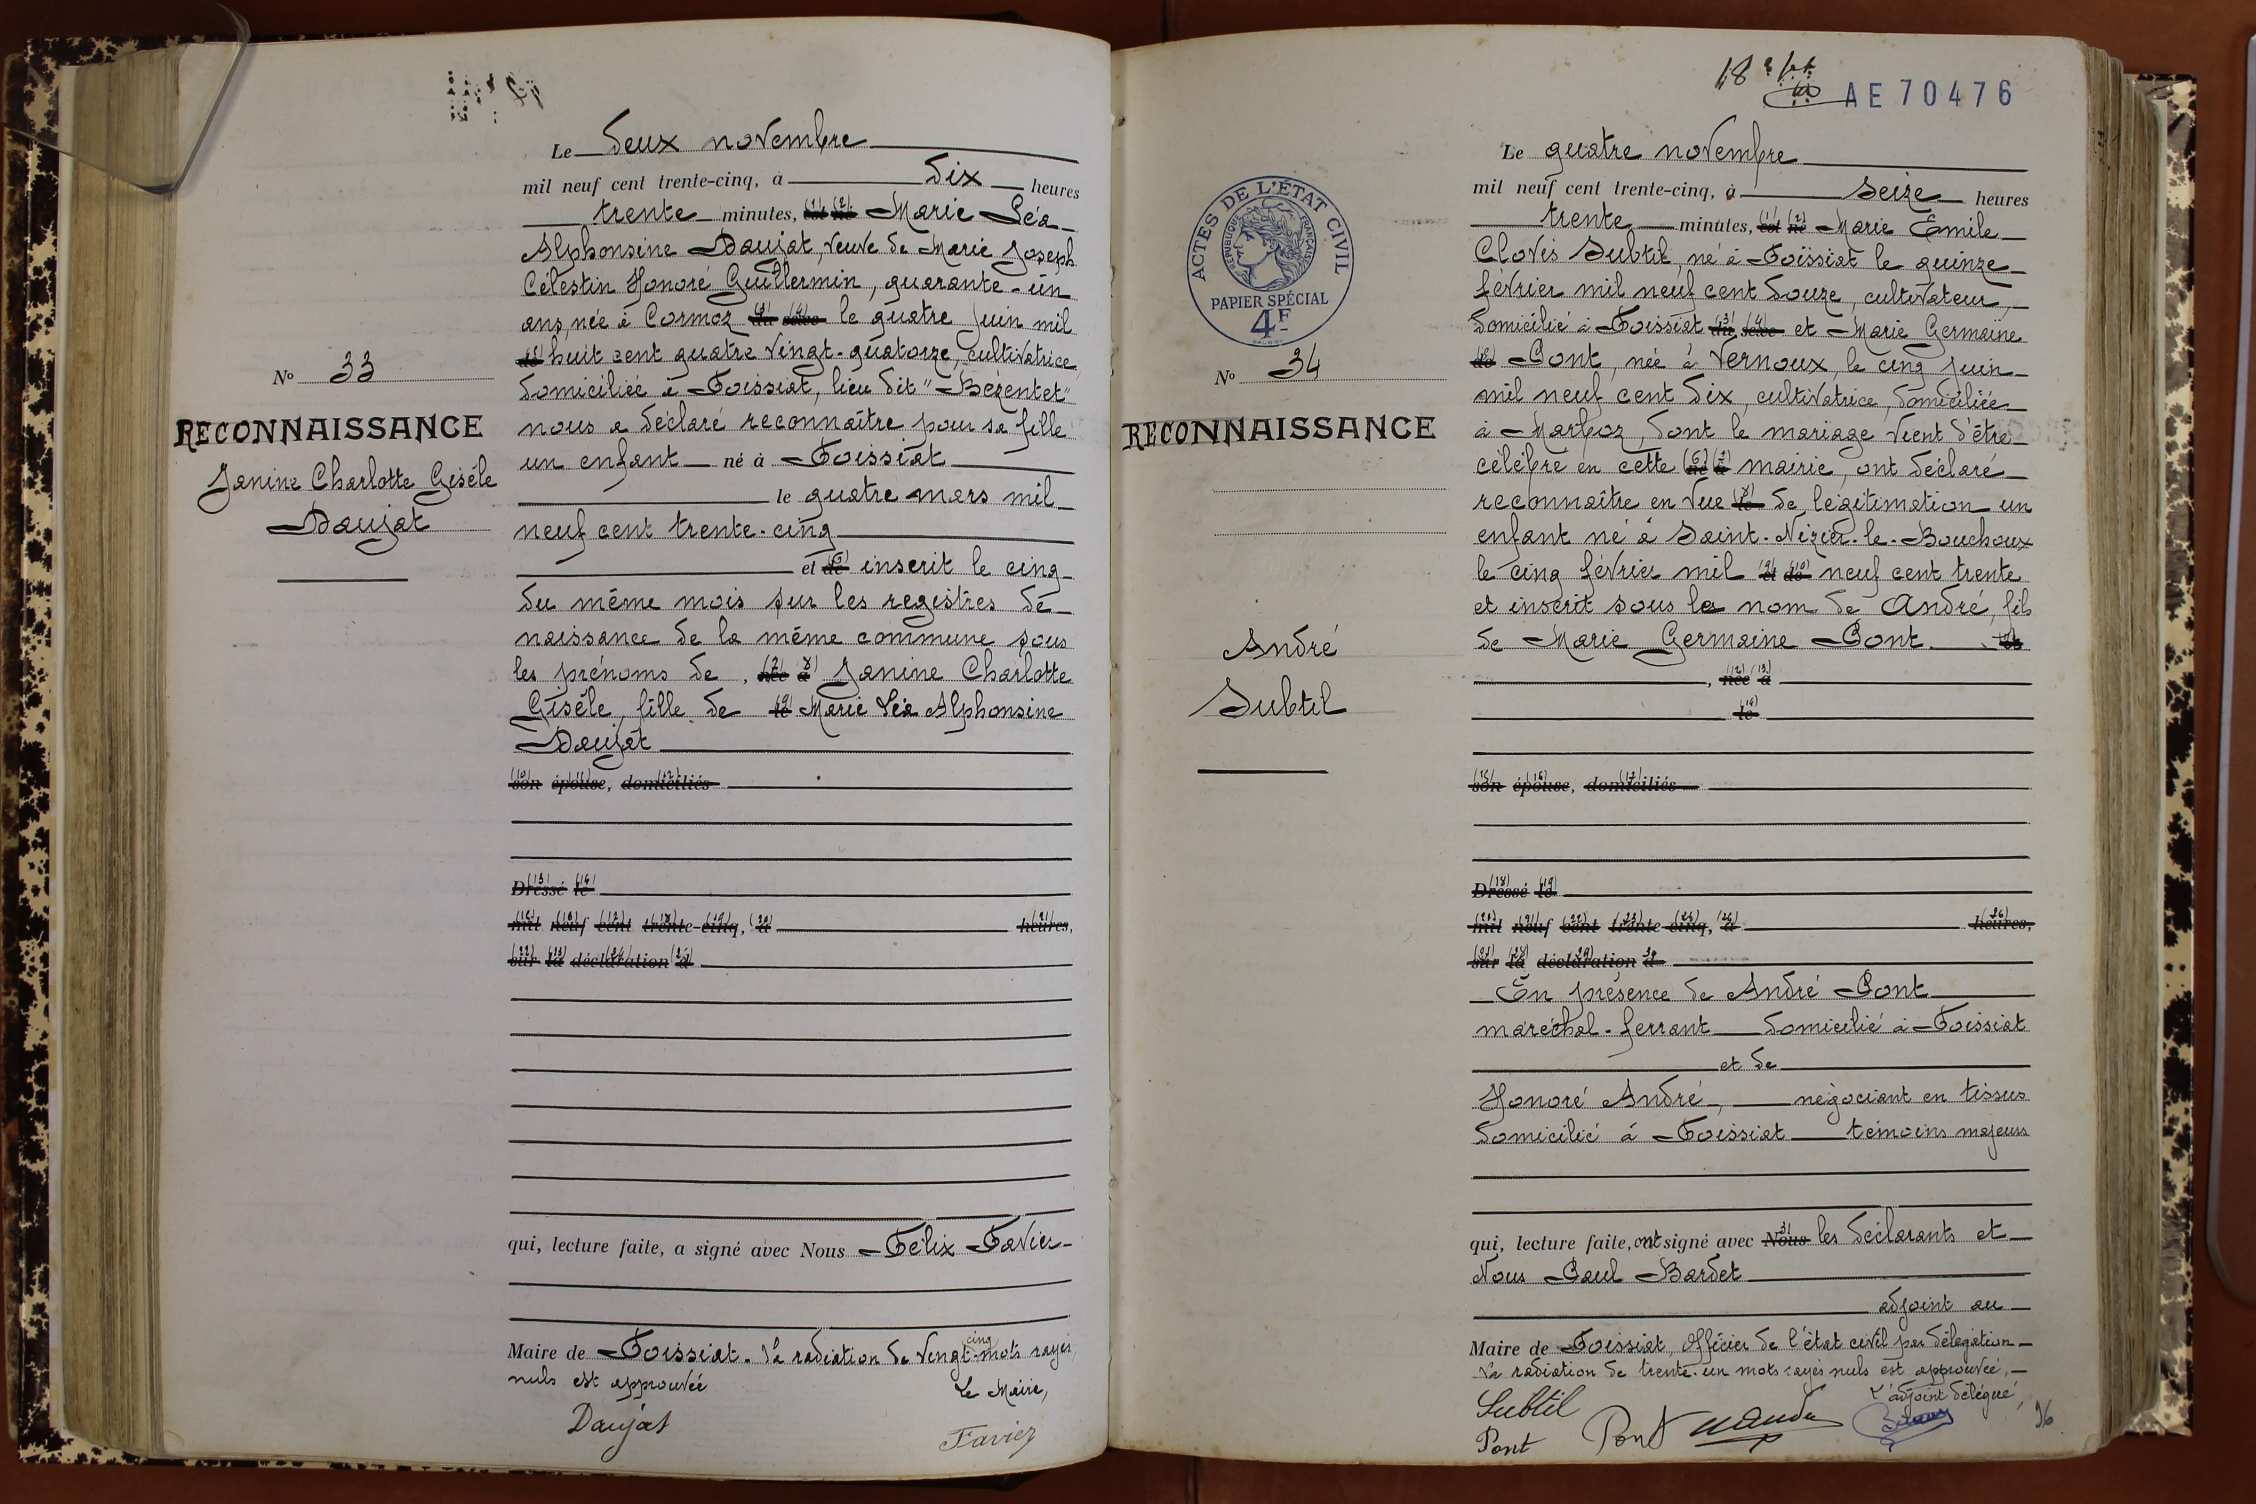 Le deux novembre
mil neuf cent trente-cinq, à dix heures
trente minutes, Marie Léa
Alphonsine Daujat, veuve de Marie Joseph
Célestin Honoré Guillermin, quarante-un
ans, née à Cormoz le quatre juin mil
huit cent quatre vingt-quatorze, cultivatrice
domiciliée à Foissiat, lieu dit "Bézentet"
nous a déclaré reconnaître pour sa fille
un enfant né à Foissiat
le quatre mars mil
neuf cent trente-cinq
et inscrit le cinq
du même mois sur les registres de
naissance de la même commune sous
les prénoms de, Janine Charlotte
Gisèle, fille de Marie Léa Alphonsine
Daujat
son épouse, domiciliés
Dressé le
mil neuf cent trente-cinq, à heures,
sur la déclaration d
qui, lecture faite, a signé avec Nous Félix Favier
Maire de Foissiat. La radiation de vingt-cinq mots rayés
nuls est approuvée
Le Maire,
Daujat
Favier
No 33
RECONNAISSANCE
Janine Charlotte Gisèle
Daujat
18
AE 70476
ACTES DE L'ÉTAT CIVIL
RÉPUBLIQUE FRANÇAISE
PAPIER SPÉCIAL
4F
No 34
RECONNAISSANCE
André
Subtil
Le quatre novembre
mil neuf cent trente-cinq, à seize heures
trente minutes, Marie Emile
Clovis Subtil, né à Foissiat le quinze
février mil neuf cent douze, cultivateur,
domicilié à Foissiat et Marie Germaine
Pont, née à Vernoux, le cinq juin
mil neuf cent dix, cultivatrice, domiciliée
à Marboz, dont le mariage vient d'être
célébré en cette mairie, ont déclaré
reconnaître en vue de légitimation un
enfant né à Saint-Nizier-le-Bouchoux
le cinq février mil neuf cent trente
et inscrit sous le nom de André, fils
de Marie Germaine Pont
, née à
le
son épouse, domiciliés
Dressé le
mil neuf cent trente-cinq, à heures,
sur la déclaration d
En présence de André Pont
maréchal-ferrant domicilié à Foissiat
et de
Honoré André, négociant en tissus
domicilié à Foissiat témoins majeurs
qui, lecture faite, ont signé avec Nous les déclarants et
Nous Paul Bardet
adjoint au
Maire de Foissiat, Officier de l'état civil par délégation
La radiation de trente-un mots rayés nuls est approuvée,
L'adjoint délégué,
Subtil
Pont
Pont
96